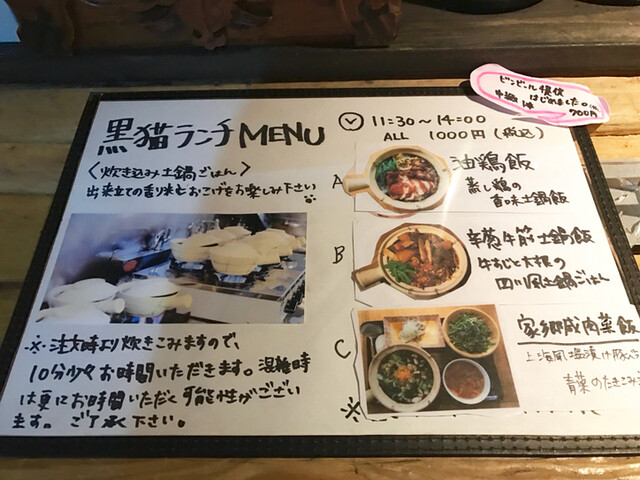 黒猫ランチMENU
11:30～14:00
ALL 1000円(税込)
ビンビール提供
はじめました。
中瓶 1本 700円
〈炊き込み土鍋ごはん〉
出来立ての香り米とおこげをお楽しみ下さい
A
油鶏飯
蒸し鶏の
香味土鍋飯
B
辛葱牛筋土鍋飯
牛すじと大根の
四川風土鍋ごはん
C
家郷咸肉菜飯
上海風塩漬け豚
青菜のたきこみ
※注文時より炊きこみますので、
10分少々お時間いただきます。混雑時
は更にお時間いただく可能性がござい
ます。ご了承下さい。
※